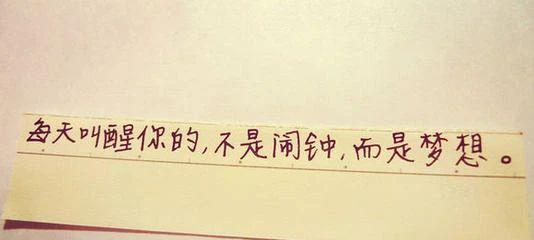 每天叫醒你的,不是闹钟,而是梦想。